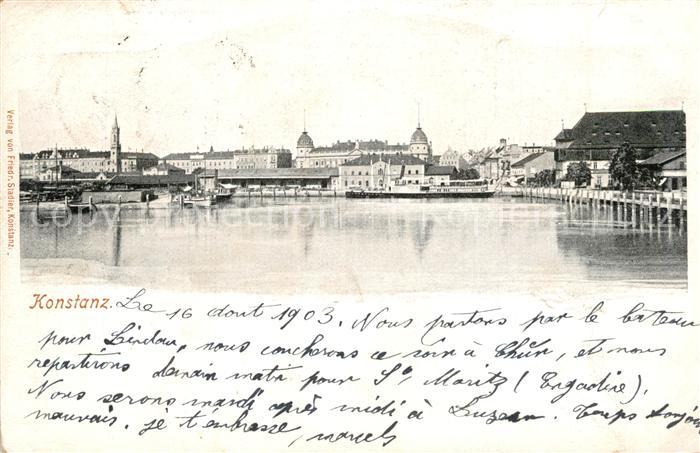 Verlag von Friedr. Stadler, Konstanz.
Konstanz. Le 16 aout 1903. Nous partons par le bateau
pour Lindau, nous coucherons ce soir à Chûr, et nous
repartirons demain matin pour St. Moritz (Engadine).
Nous serons mardi après midi à Luzern. Temps toujours
mauvais. je t'embrasse, marcel